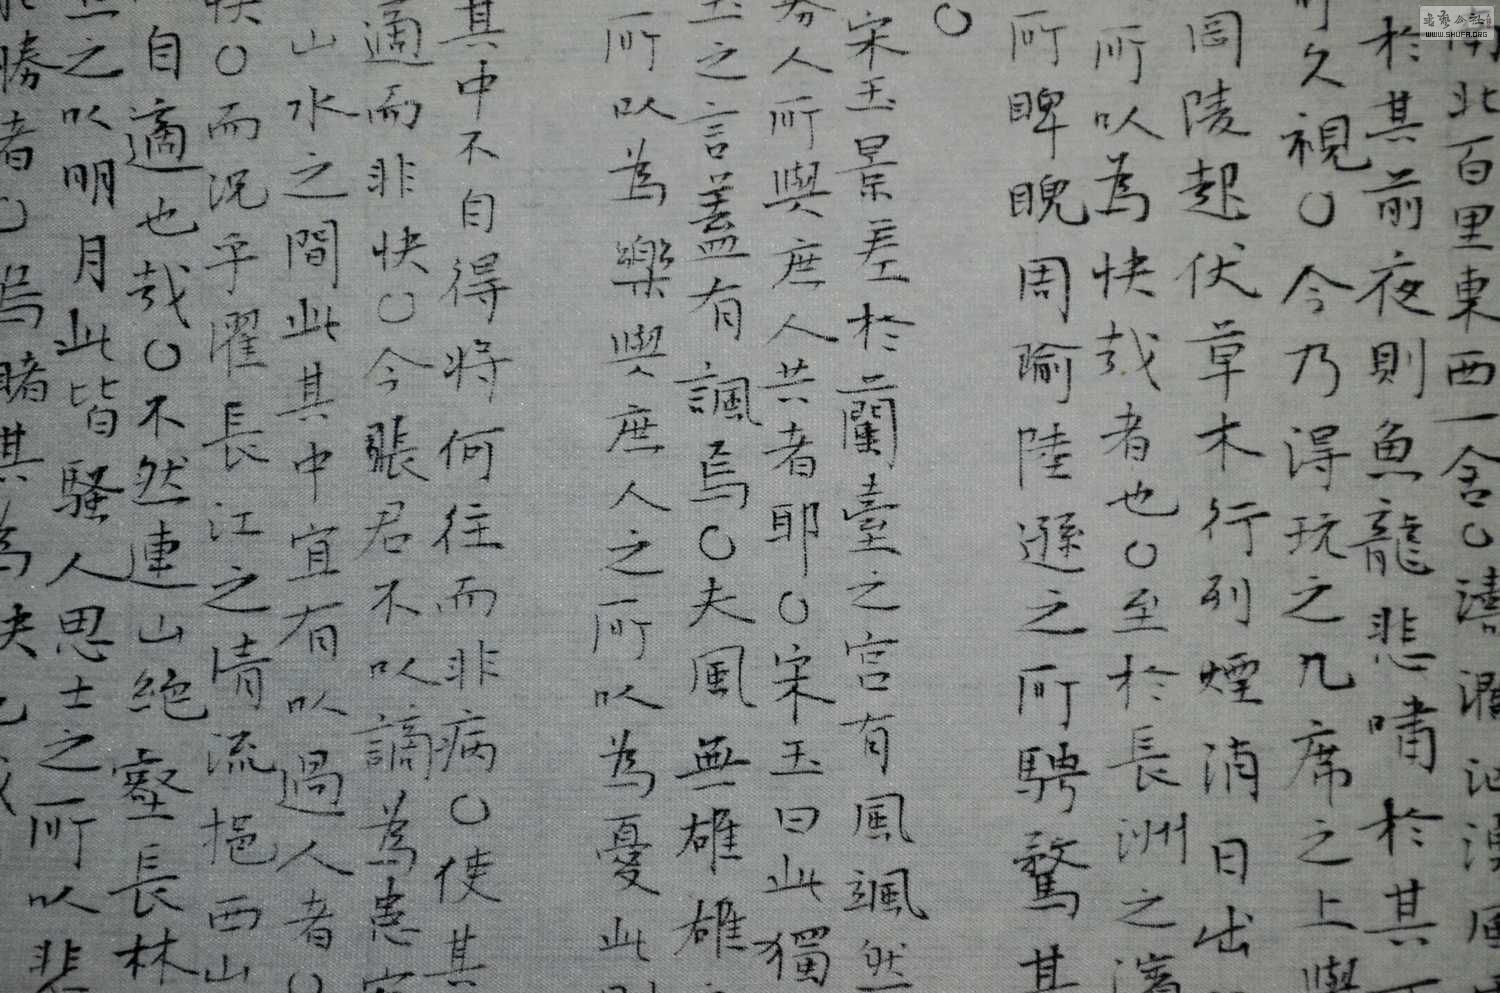 南北百里東西一舍○濤瀾洶湧風
於其前夜則魚龍悲嘯於其下
久視○今乃得玩之几席之上與
岡陵起伏草木行列煙消日出
所以為快哉者也○至於長洲之濱
所睥睨周瑜陸遜之所騁騖其
○
宋玉景差於蘭臺之宮有風颯然
人所與庶人共者耶○宋玉曰此獨
玉之言蓋有諷焉○夫風無雄雌
所以為樂與庶人之所以為憂此則
其中不自得將何往而非病○使其
適而非快○今張君不以謫為患
山水之間此其中宜有以過人者○
快○而況乎濯長江之清流挹西山
自適也哉○不然連山絕壑長林
之以明月此皆騷人思士之所以悲
勝者○烏睹其為快也哉
書藝公社
WWW.SHUFA.ORG